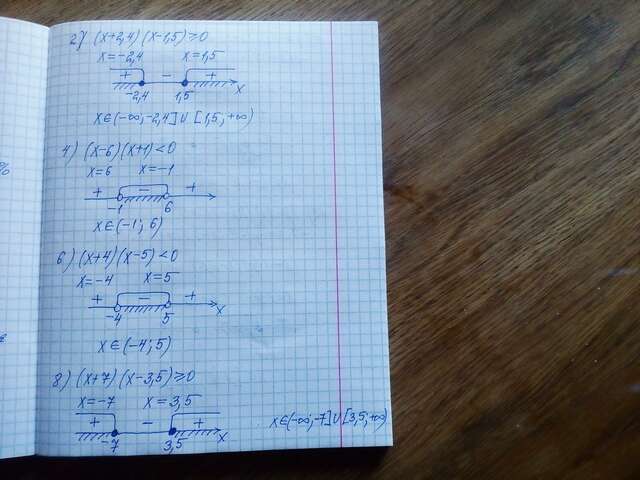 2) (x+2,4)(x-1,5)≥0
x=-2,4 x=1,5
+ - +
-2,4 1,5 x
x∈(-∞;-2,4]∪[1,5;+∞)
4) (x-6)(x+1)<0
x=6 x=-1
+ - +
-1 6
x∈(-1;6)
6) (x+4)(x-5)<0
x=-4 x=5
+ - +
-4 5 x
x∈(-4;5)
8) (x+7)(x-3,5)≥0
x=-7 x=3,5
+ - +
7 3,5 x
x∈(-∞;-7]∪[3,5;+∞)
%